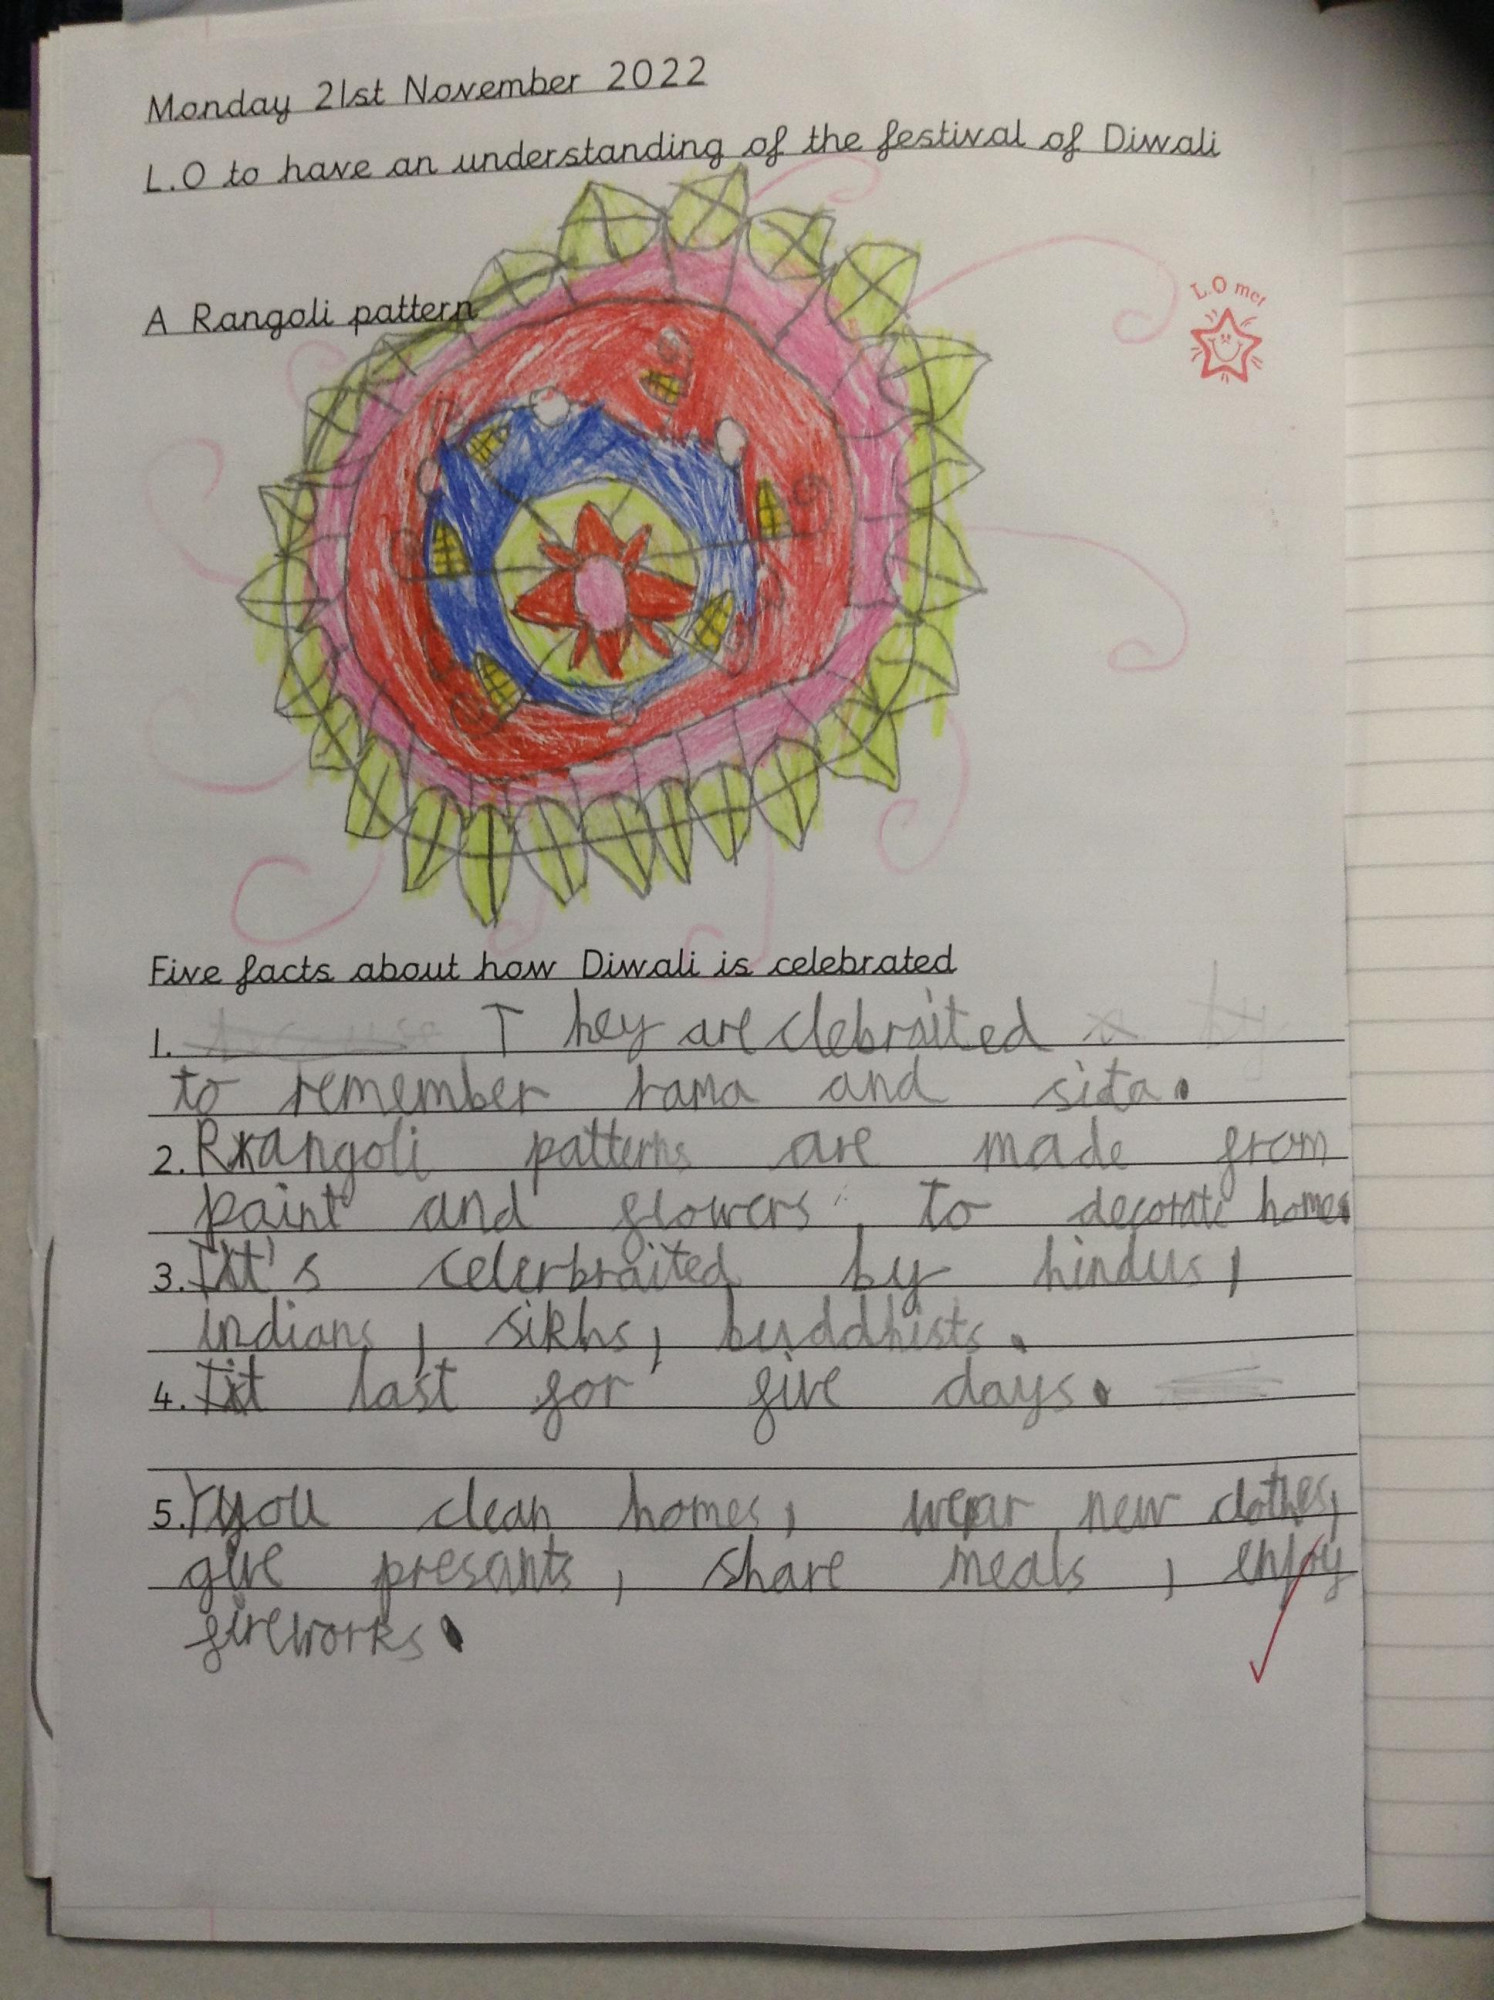 Monday 21st November 2022
L.O to have an understanding of the festival of Diwali
L.O met
A Rangoli pattern
Five facts about how Diwali is celebrated
1. They are clebraited
to remember rama and sita.
2. Rrangoli patterns are made from
paint and flowers, to decorate homes
3. It's celerbraited by hindus,
indians, sikhs, buddhists.
4. It last for five days.
5. You clean homes, wear new clothes,
give presants, share meals, enjoy
fireworks.